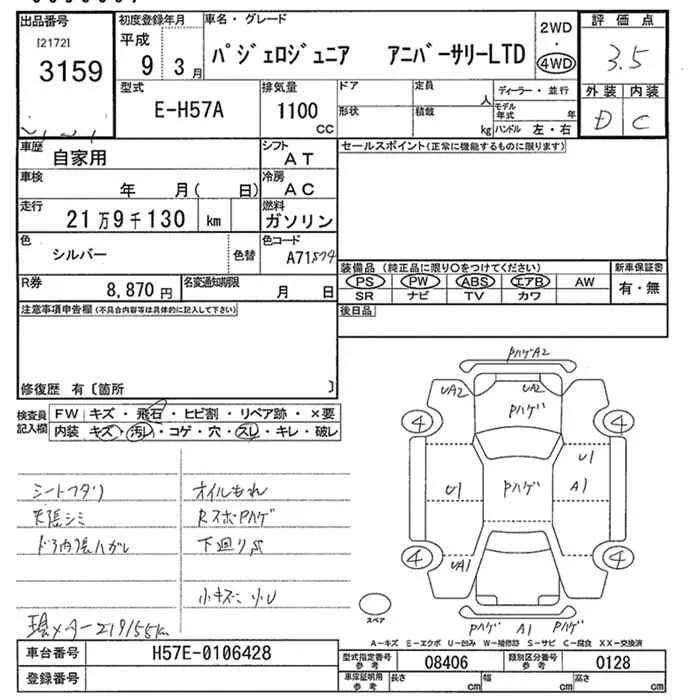 出品番号
[2172]
3159
初度登録年月
平成
9 3月
車名・グレード
パジェロジュニア アニバーサリーLTD
2WD
・
4WD
評価点
3.5
外装 内装
D C
型式
E-H57A
排気量
1100
cc
ドア
形状
定員
人
積載
kg
ディーラー・並行
モデル年式 年
ハンドル 左・右
車歴
自家用
シフト
AT
セールスポイント(正常に機能するものに限ります)
車検
年 月( 日)
冷房
AC
走行
21万9千130 km
燃料
ガソリン
色
シルバー
色替
色コード
A71574
装備品 (純正品に限り〇をつけてください)
新車保証書
PS PW ABS エアB AW
有・無
SR ナビ TV カワ
R券
8,870円
名変通知期限
月 日
注意事項申告欄(不具合内容等は具体的に記入して下さい)
後日品
修復歴 有〔箇所 〕
検査員記入欄
FW キズ・飛石・ヒビ割・リペア跡・×要
内装 キズ・汚レ・コゲ・穴・スレ・キレ・破レ
シートフタリ
天張シミ
ドア内張ハガレ
オイルもれ
RスポPハゲ
下廻りS
小キズ小U
現メーター219155km
PハゲA2
UA2
UA2
Pハゲ
4
4
U1
U1
A1
Pハゲ
4
4
UA1
スペア
Pハゲ A1 Pハゲ
A-キズ E-エクボ U-凹み W-補修跡 S-サビ C-腐食 XX-交換済
車台番号
H57E-0106428
登録番号
型式指定番号
参考
08406
類別区分番号
参考
0128
車庫証明用
参考
長さ cm
幅 cm
高さ cm